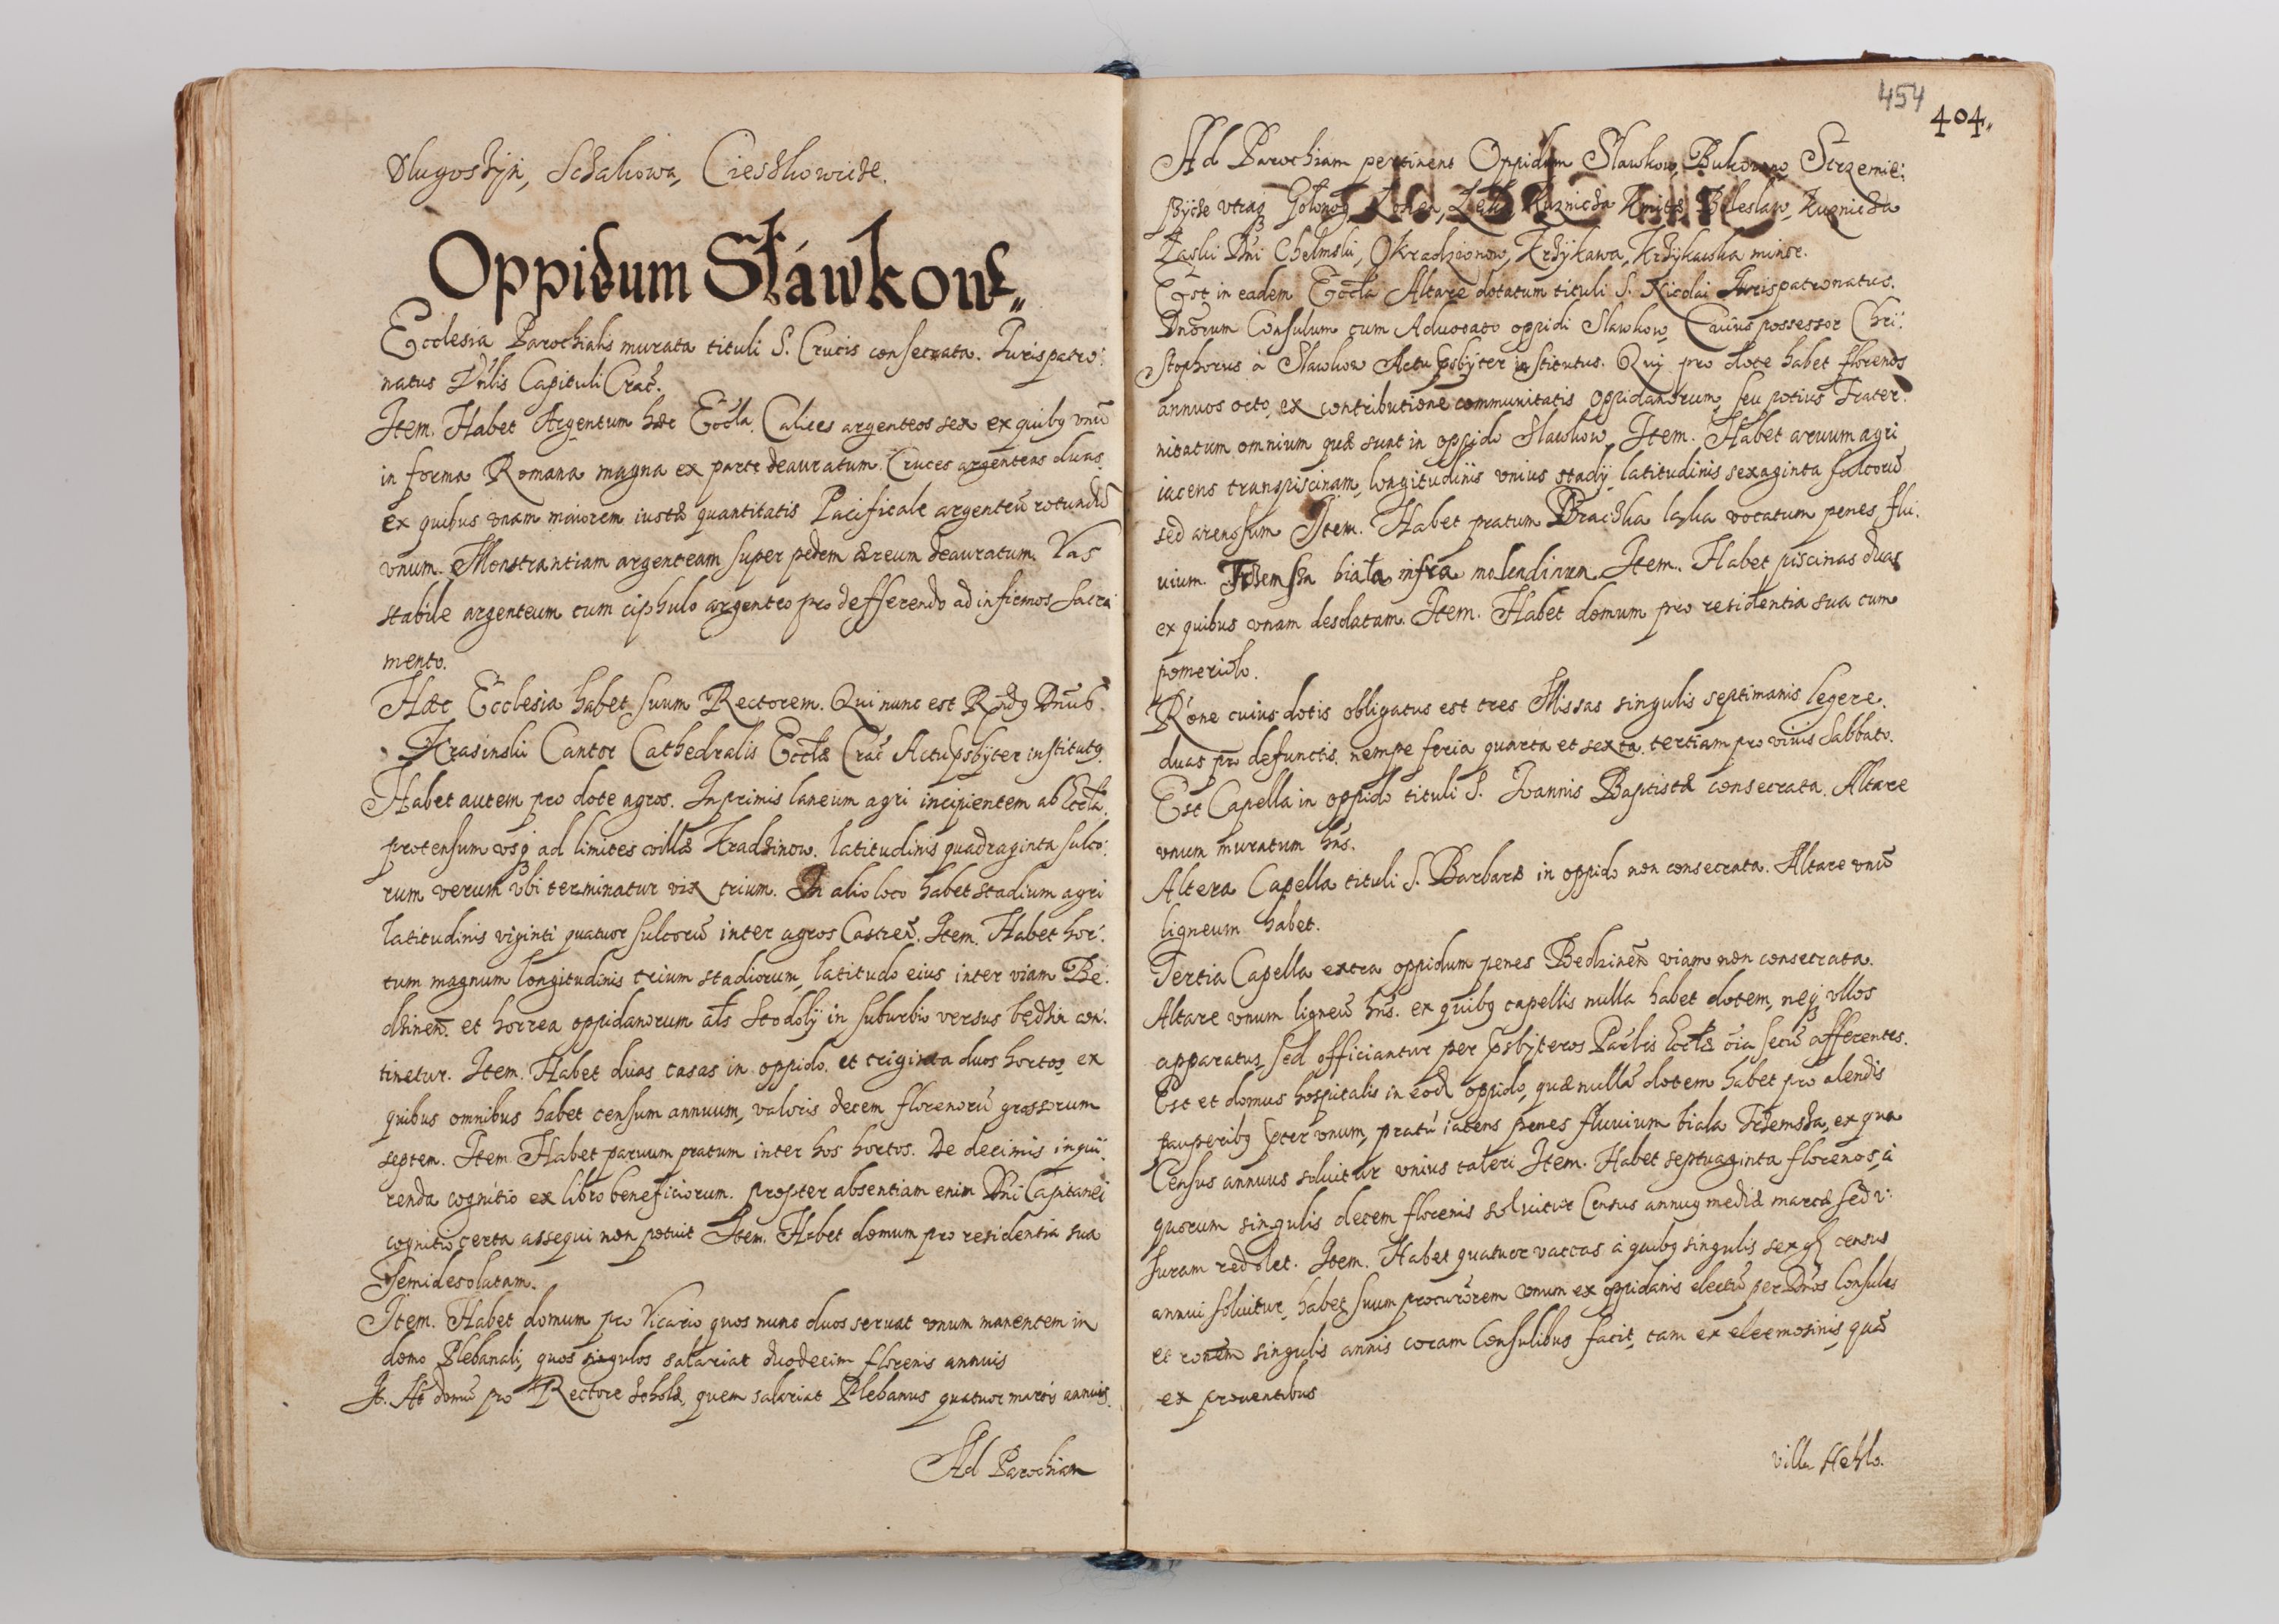 Dlugoszyn, Sczakowa, Cieszkowicze.
Oppidum Sławkow.
Ecclesia Parochialis murata tituli S. Crucis consecrata. Iurispatro:
natus Vnlis Capituli Crac.
Item. Habet Argentum hæc Eccla. Calices argenteos sex ex quibq vnū
in forma Romana magna ex parte deauratum. Cruces argenteas duas
ex quibus vnam maiorem iustæ quantitatis Pacificale argenteū rotundū
vnum. Monstrantiam argenteam super pedem æreum deauratum. Vas
stabile argenteum cum ciphulo argenteo pro defferendo ad infirmos Sacra
mento.
Hæc Ecclesia habet suum Rectorem. Qui nunc est Rndq Dnus
Krasinski Cantor Cathedralis Ecclæ Crac Actu psbÿter institutq.
Habet autem pro dote agros. Inprimis laneum agri incipientem ab Eccla
protensum vsq ad limites villæ Kradzinow. latitudinis quadraginta sulco:
rum verum vbi terminatur vix trium. In alio loco habet stadium agri
latitudinis viginti quatuor sulcorū inter agros Castren. Item. Habet hor:
tum magnum longitudinis trium stadiorum, latitudo eius inter viam Be:
dzinen. et horrea oppidanorum als Stodolÿ in suburbio versus bedzin con:
tinetur. Item. Habet duas casas in oppido. et triginta duos hortos, ex
quibus omnibus habet censum annuum, valoris decem florenorū grossorum
septem. Item Habet paruum pratum inter hos hortos. De decimis inqui:
renda cognitio ex libro beneficiorum. propter absentiam enim Dni Capitanei
cognitio certa assequi non potuit Item. Habet domum pro residentia sua
Semidesolatam.
Item. Habet domum pro Vicario quos nunc duos seruat vnum manentem in
domo Plebanali, quos singulos salariat duodecim florenis annuis
It. Ht domū pro Rectore Scholæ, quem salariat Plebanus quatuor marcis annuis.
Ad Parochiam
454
404
Ad Parochiam pertinent Oppidum Slawkow, Bukowno, Strzemie:
szÿcze vtraq Golonog, Losien, Kuznicza Kmitæ Boleslaw, Kuznicza
Laski Dni Chelmski, Okradzionow, Krzÿkawa, Krzÿkawka minor.
Est in eadem Eccla Altare dotatum tituli S. Nicolai Iurispatronatus.
Dnorum Consulum cum Aduocato oppidi Slawkow, Cuius possessor Chri:
stophorus à Slawkow Actu psbÿter institutus. Qui pro dote habet florenos
annuos octo, ex contributione communitatis oppidanorum, seu potius Frater:
nitatum omnium quæ sunt in oppido Slawkow, Item. Habet aruum agri
iacens transpiscinam, longitudinis vnius stadÿ latitudinis sexaginta sulcorū
sed arenosum Item. Habet pratum Braczka laska vocatum penes flu:
uium. Trzemsza biała infra molendinum Item. Habet piscinas duas
ex quibus vnam desolatam. Item. Habet domum pro residentia sua cum
pomeriolo.
R̄one cuius dotis obligatus est tres Missas singulis septimanis legere.
duas pro defunctis. nempe feria quarta et sexta. tertiam pro viuis Sabbato.
Est Capella in oppido tituli S. Ioannis Baptistæ consecrata. Altare
vnum muratum hns.
Altera Capella tituli S. Barbaræ in oppido non consecrata. Altare vnū
ligneum habet.
Tertia Capella extra oppidum penes Bedzinen viam non consecrata.
Altare vnum ligneū hns. ex quibq capellis nulla habet dotem, neq vllos
apparatus, sed officiantur per psbÿteros Parlis Ecclæ oīa secū afferentes.
Est et domus hospitalis in eod oppido, quæ nullā dotem habet pro alendis
pauperibq pter vnum, pratū iacens penes fluuium biala Trzemsza, ex quo
Census annuus soluitur vnius taleri Item. Habet septuaginta florenos, à
quorum singulis decem florenis soluitur Census annuq mediæ marcæ sed v:
suram redolet. Item. Habet quatuor vaccas à quibq singulis sex gl census
annui soluitur, habet suum procurōrem vnum ex oppidanis electū per Dnos Consules
et rōnem singulis annis coram Consulibus facit, tam ex eleemosinis, quā
ex prouentibus
Villa Hehlo.